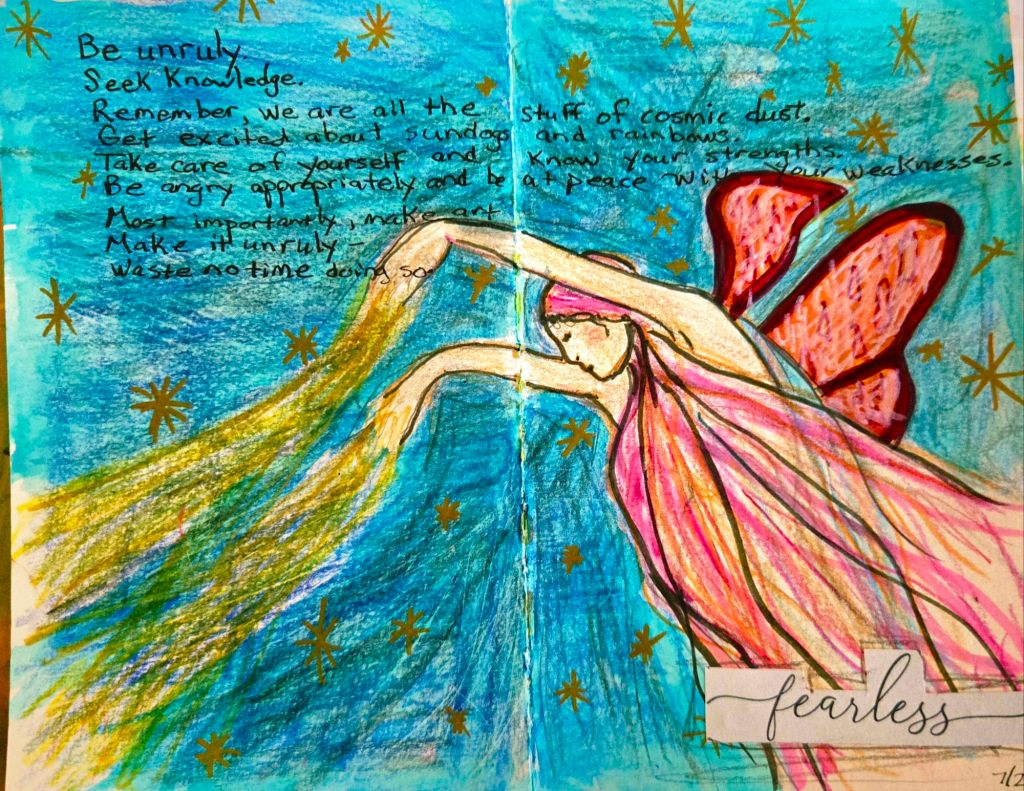 Be unruly
Seek Knowledge.
Remember, we are all the stuff of cosmic dust.
Get excited about sundogs and rainbows.
Take care of yourself and know your strengths.
Be angry appropriately and be at peace with your weaknesses.
Most importantly, make art
Make it unruly –
Waste no time doing so.
fearless
7/2